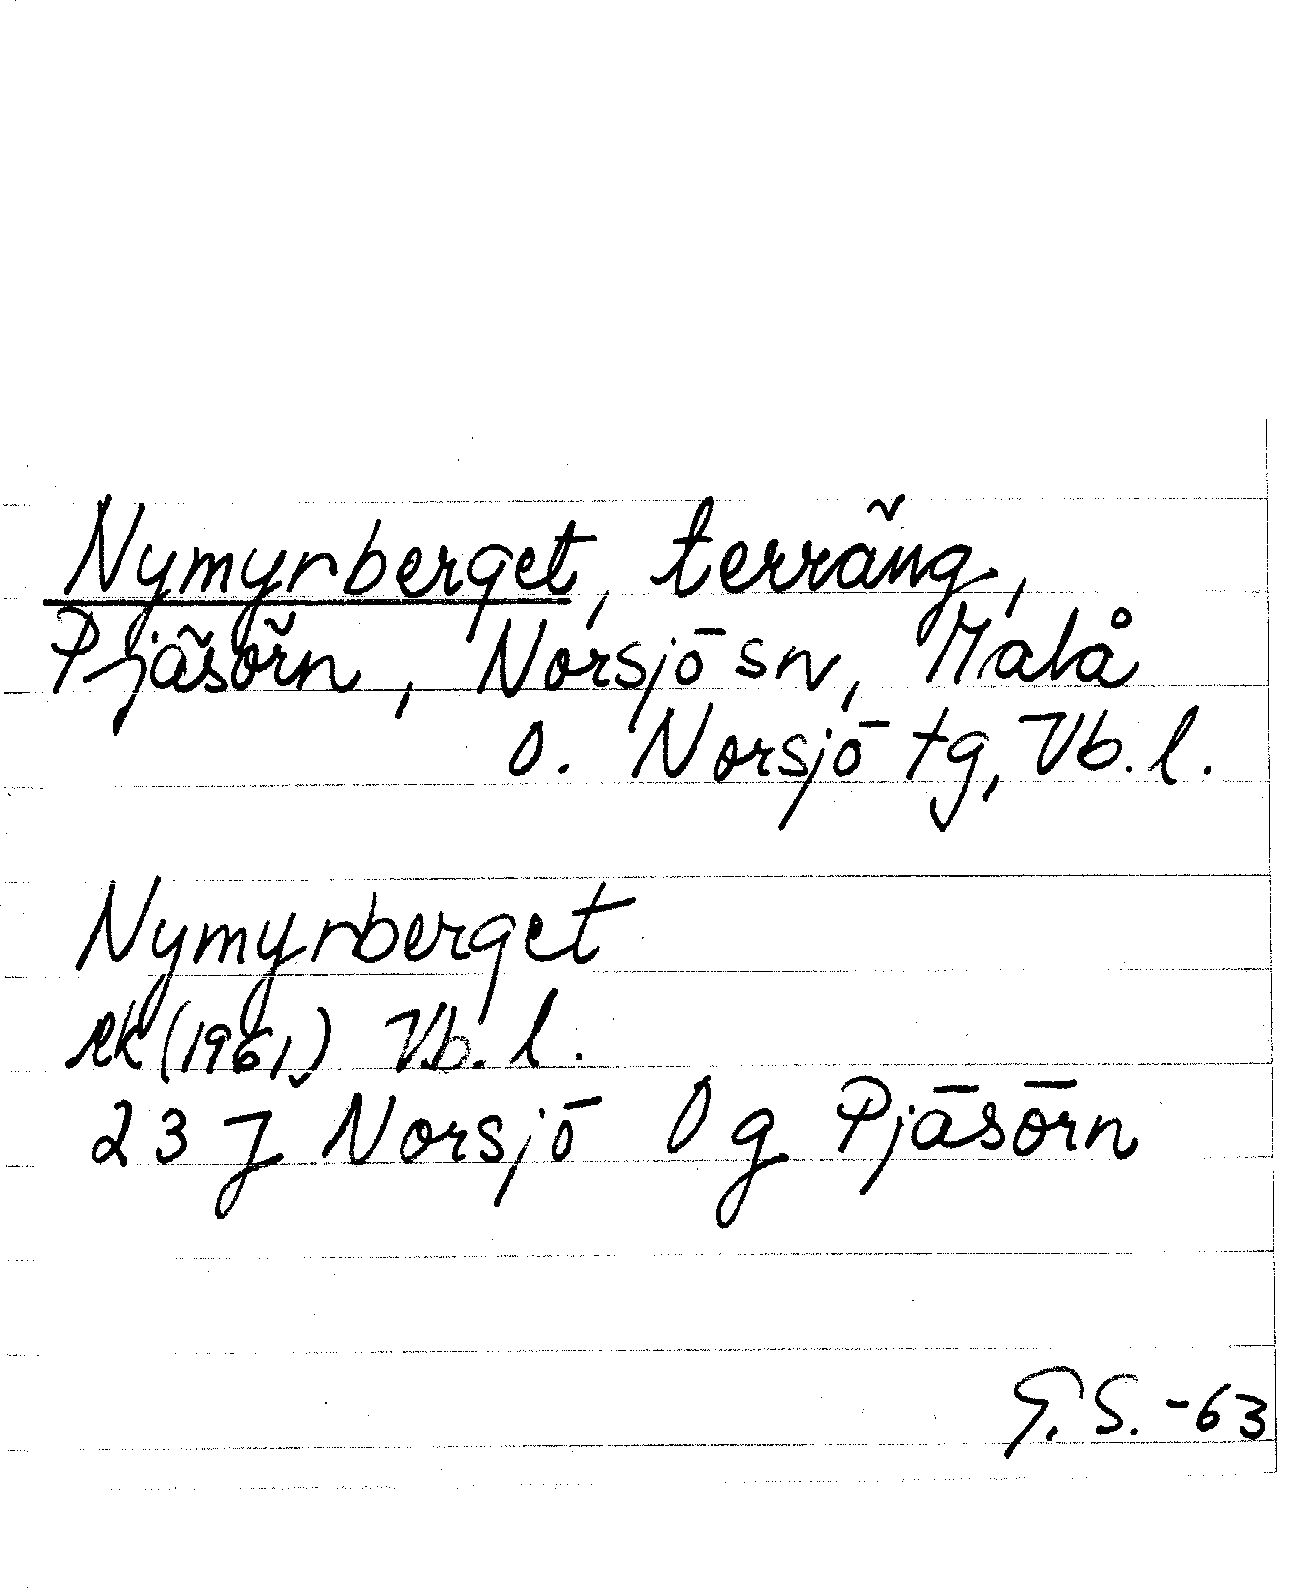 Nymyrberget, terräng,
Pjäsörn, Norsjö sn, Malå
o. Norsjö tg, Vb. l.
Nymyrberget
rk (1961) Vb. l.
23 J Norsjö 0 g Pjäsörn
G. S. -63